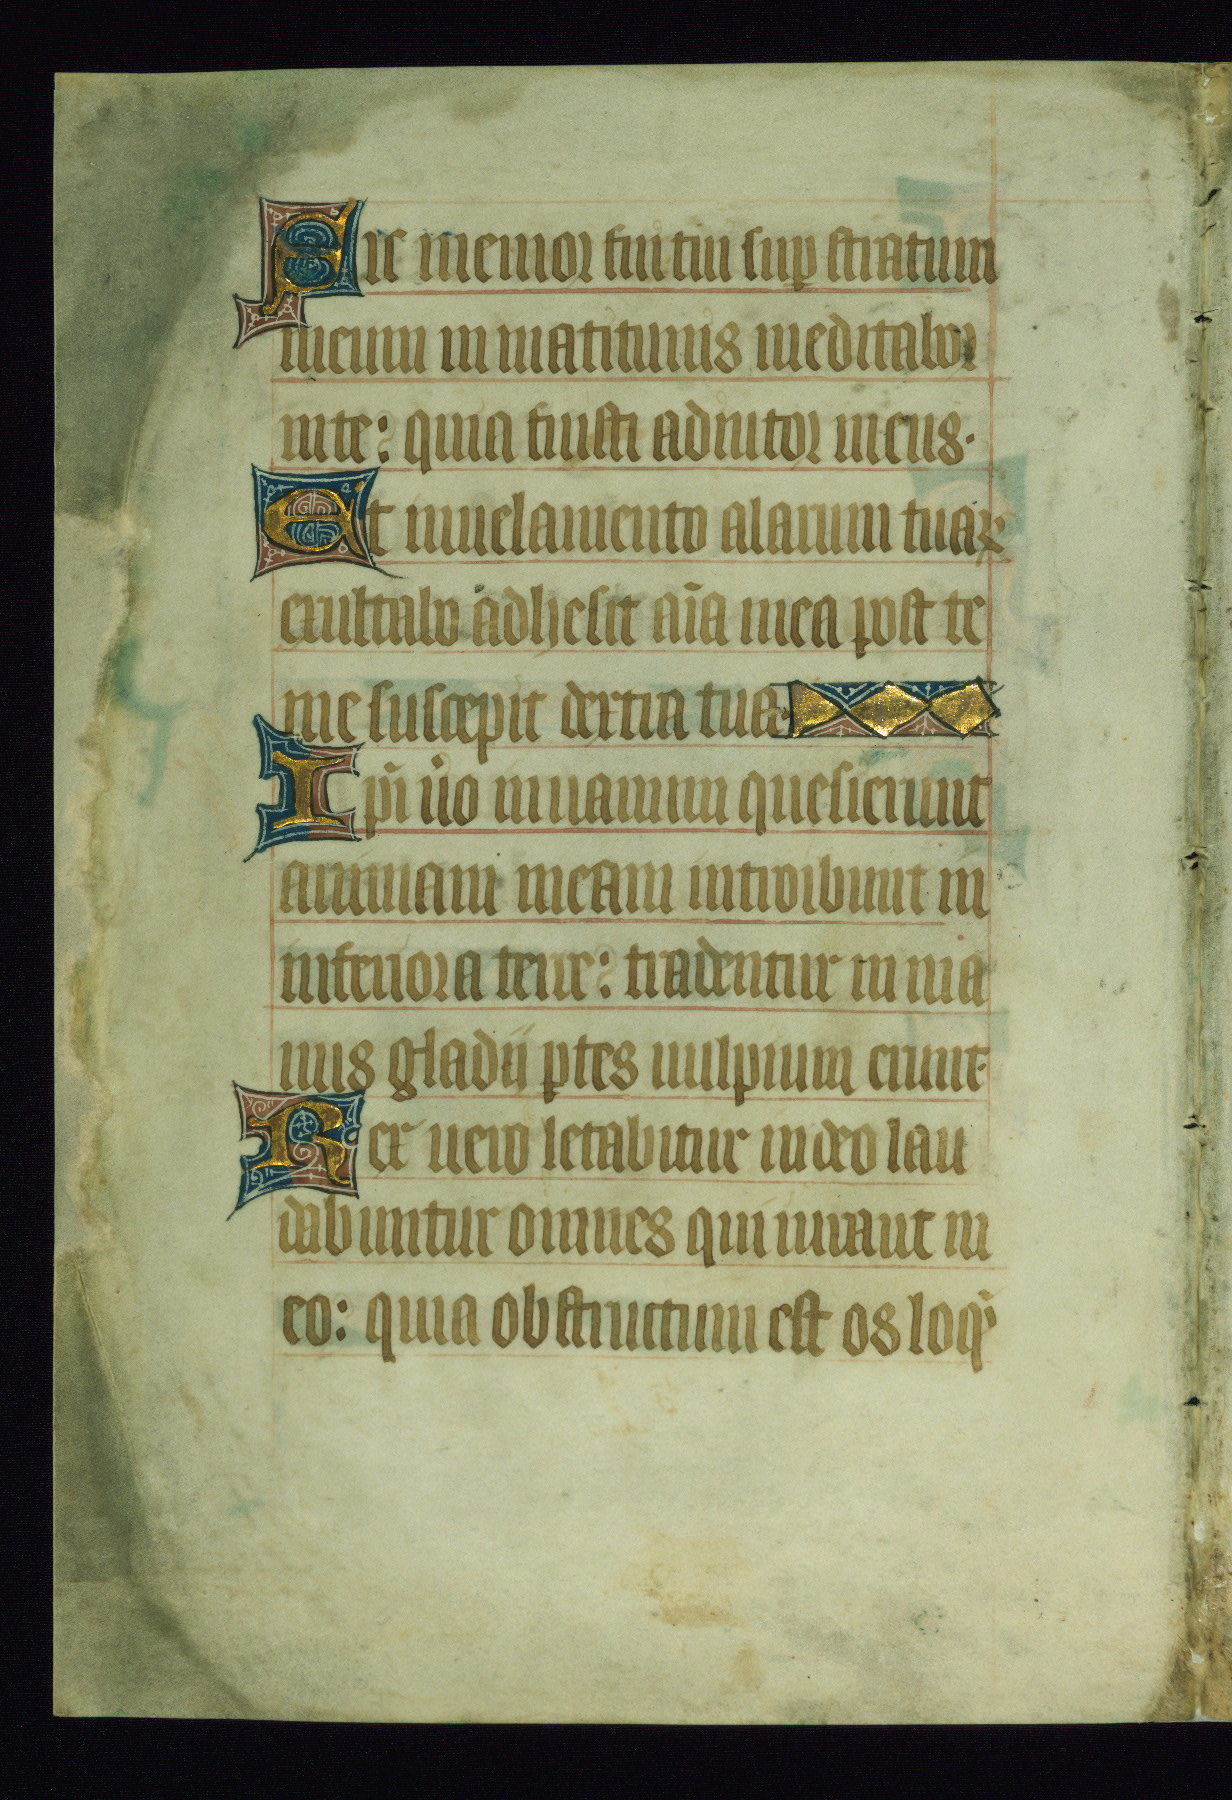 Sic memor fui tui sup stratum
meum in matitunis meditabor
in te: quia fuisti adiutor meus.
Et in uelamento alarum tuaꝝ
exultabo adhesit aīa mea post te
me suscepit dextra tua.
Ip̄i u̾o in uanum quesierunt
animam meam introibunt in
inferiora terre: tradentur in ma
nus gladij ꝑtes uulpium erunt.
Rex uero letabitur in deo lau
dabuntur omnes qui iurant in
eo: quia obstructum est os loqͥ